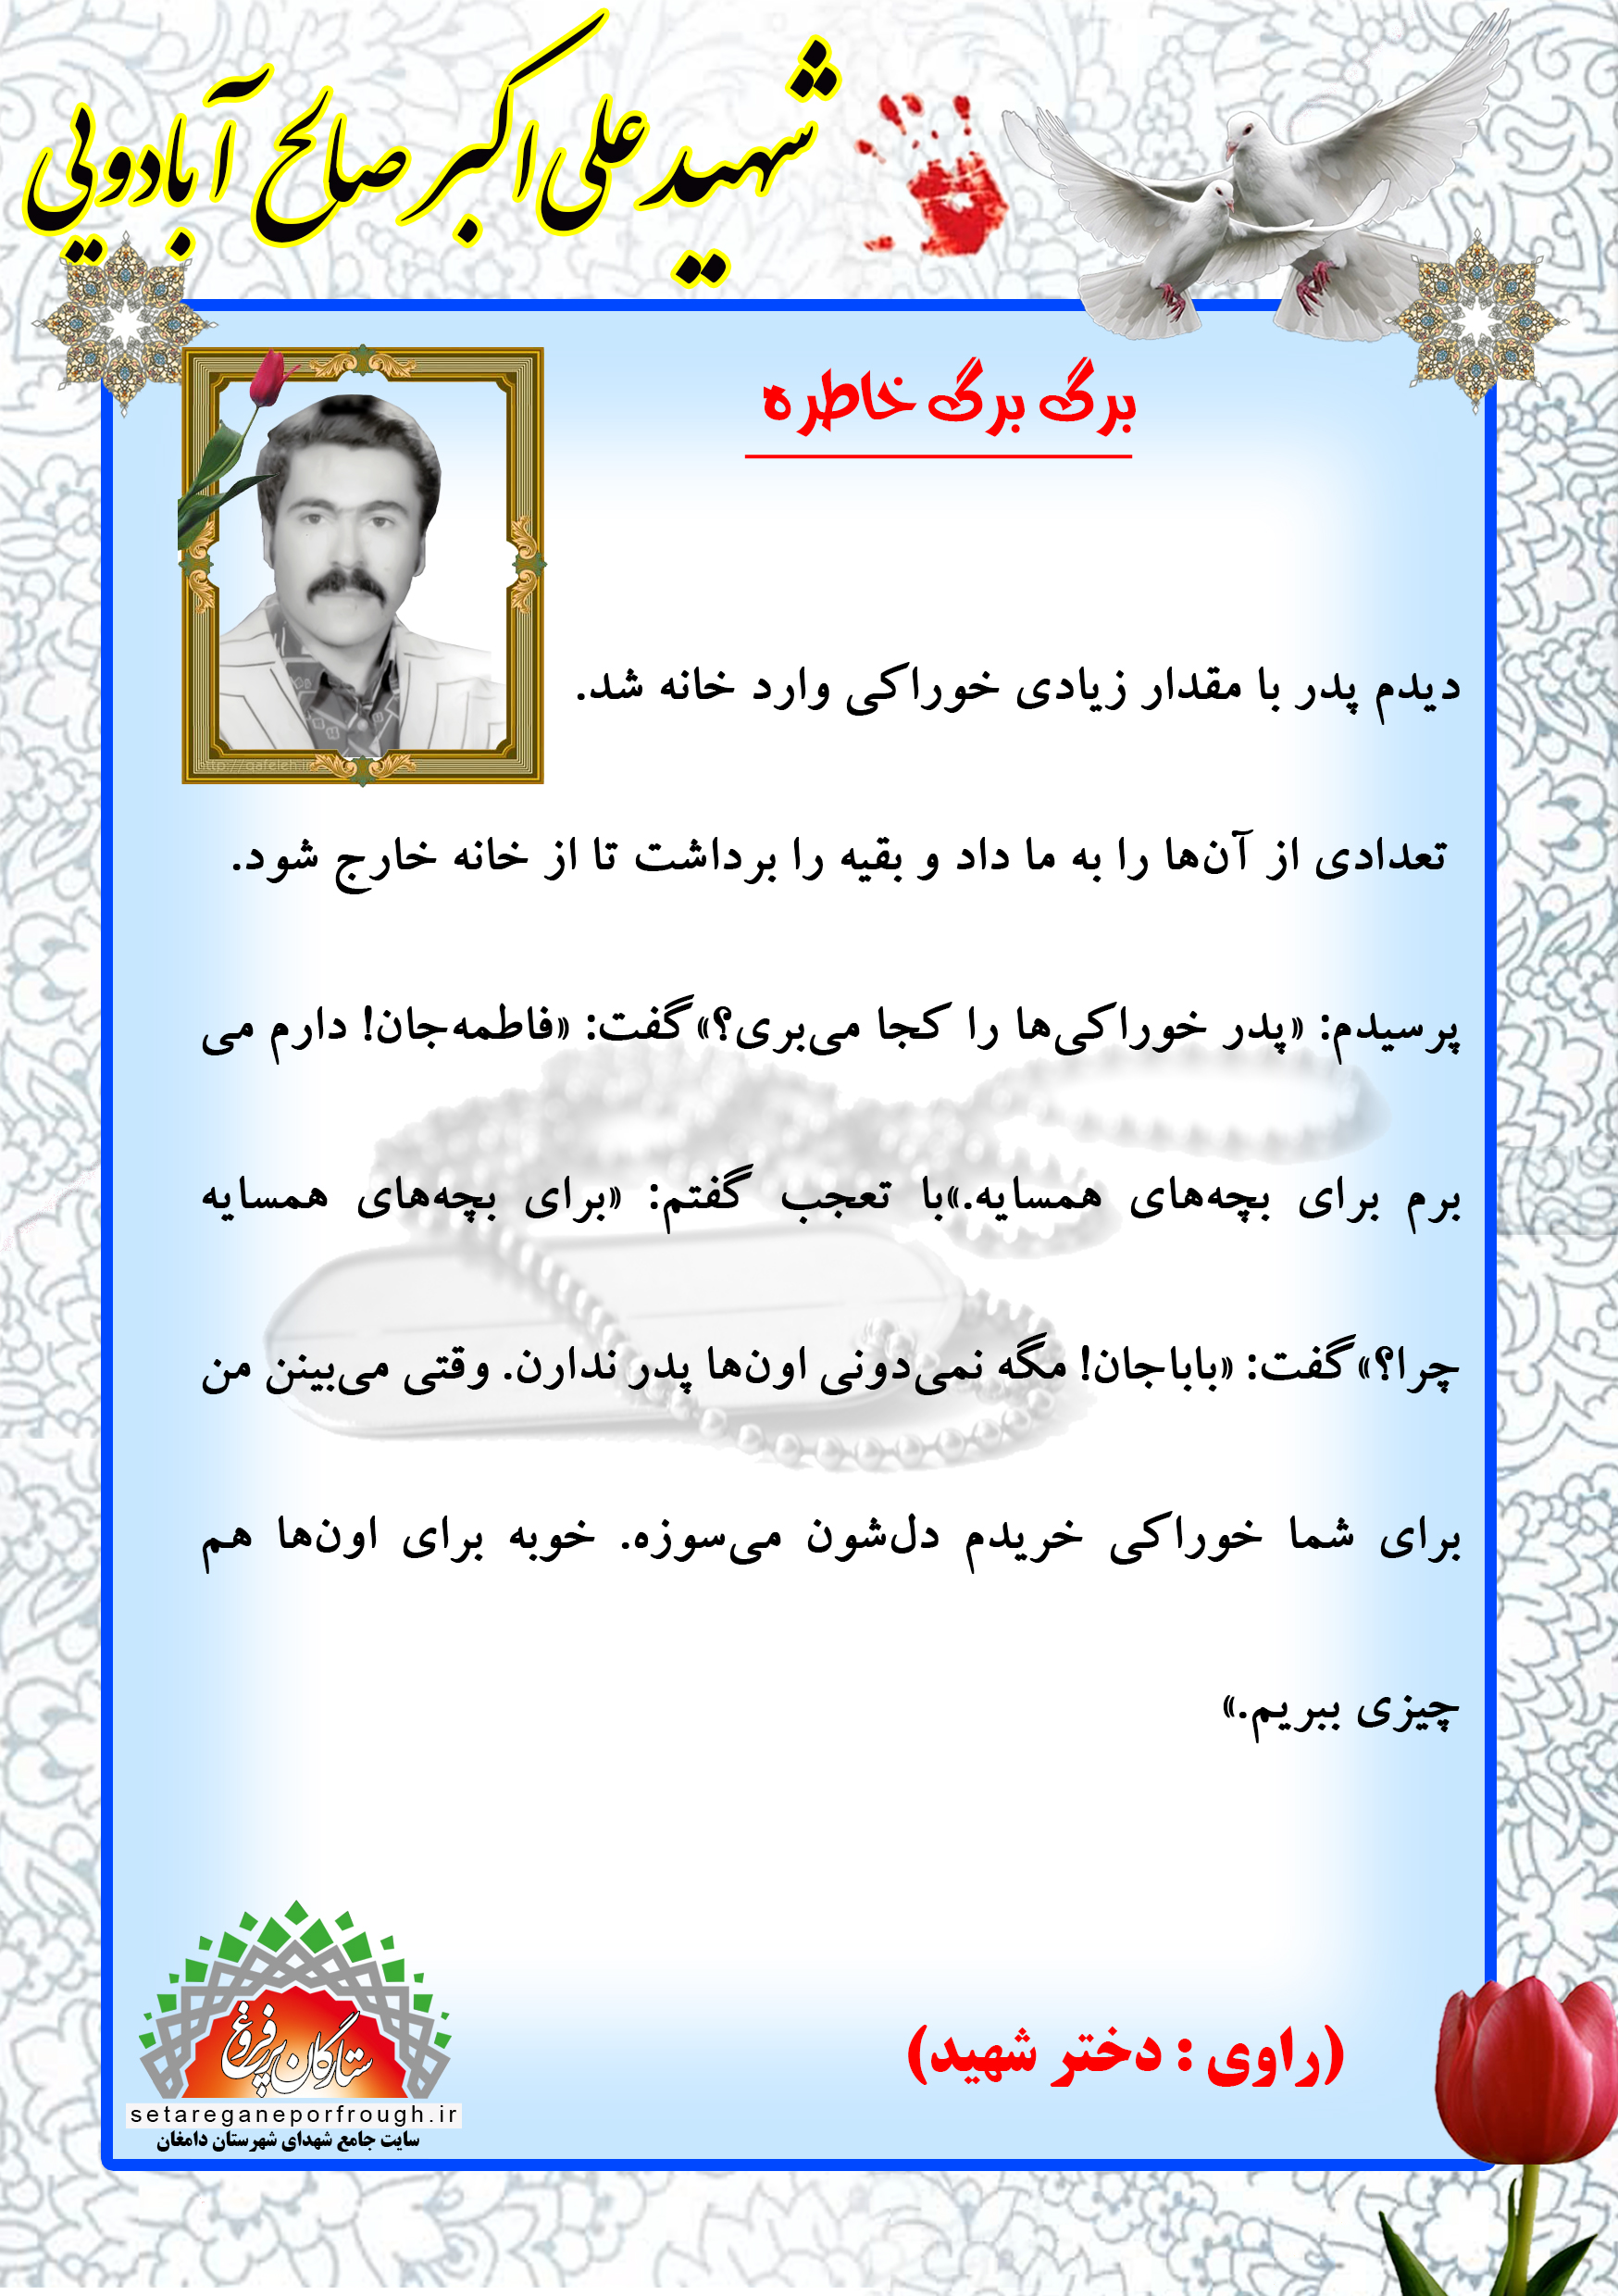 شهید علی‌اکبر صالح آبادویی
برگ برگ خاطره
http://qafeleh.ir
دیدم پدر با مقدار زیادی خوراکی وارد خانه شد.
تعدادی از آن‌ها را به ما داد و بقیه را برداشت تا از خانه خارج شود.
پرسیدم: «پدر خوراکی‌ها را کجا می‌بری؟» گفت: «فاطمه‌جان! دارم می
برم برای بچه‌های همسایه.» با تعجب گفتم: «برای بچه‌های همسایه
چرا؟» گفت: «باباجان! مگه نمی‌دونی اون‌ها پدر ندارن. وقتی می‌بینن من
برای شما خوراکی خریدم دل‌شون می‌سوزه. خوبه برای اون‌ها هم
چیزی ببریم.»
(راوی : دختر شهید)
ستارگان پرفروغ
setareganeporfrough.ir
سایت جامع شهدای شهرستان دامغان